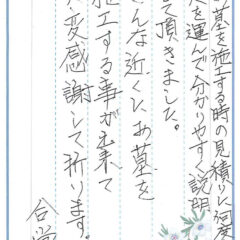 お墓を施工する時の見積りに何度
足を運んで分かりやすく説明
て頂きました。
こんな近くにお墓を
施工する事が出来て
大変感謝して折ります。
合掌